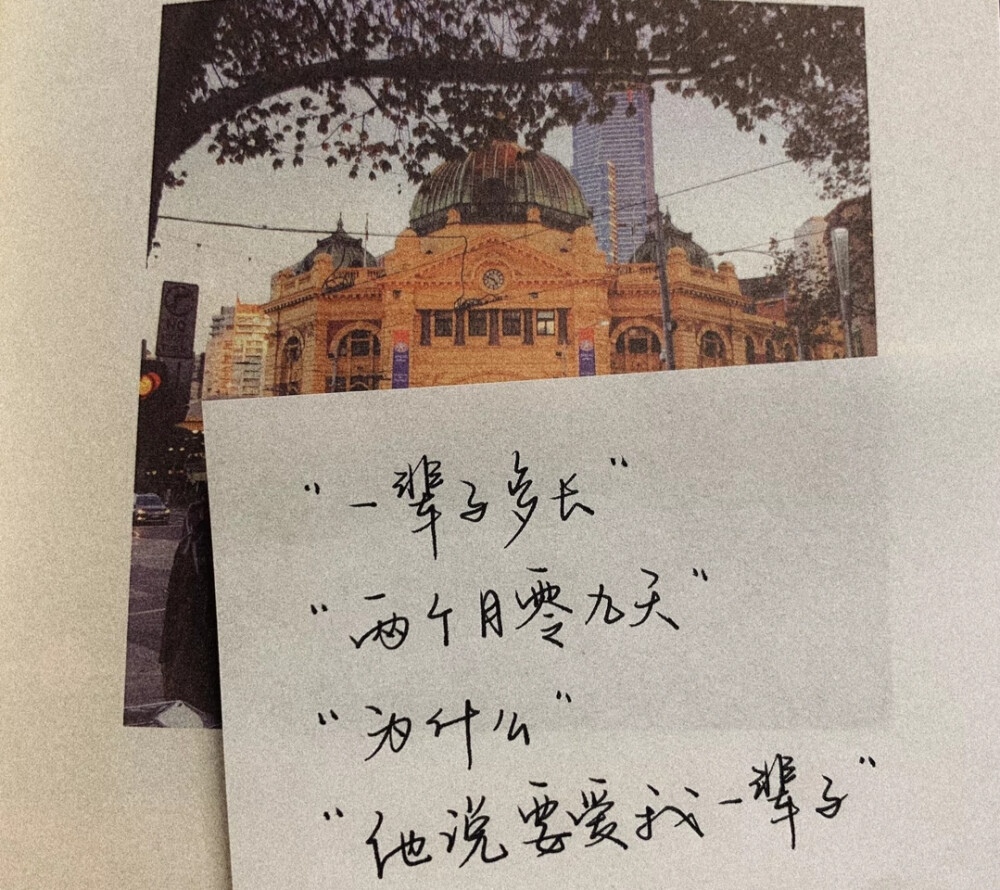 NO
“一辈子多长”
“两个月零九天”
“为什么”
“他说要爱我一辈子”